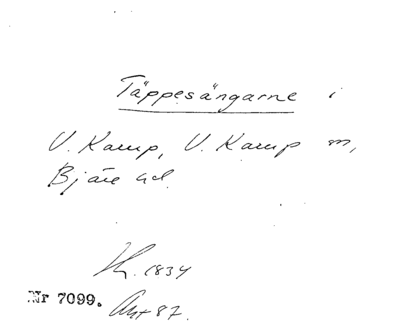 Täppesängarne i
V. Karup, V. Karup sn,
Bjäre hd.
Kr. 1834
Nr 7099.
Akt 87.